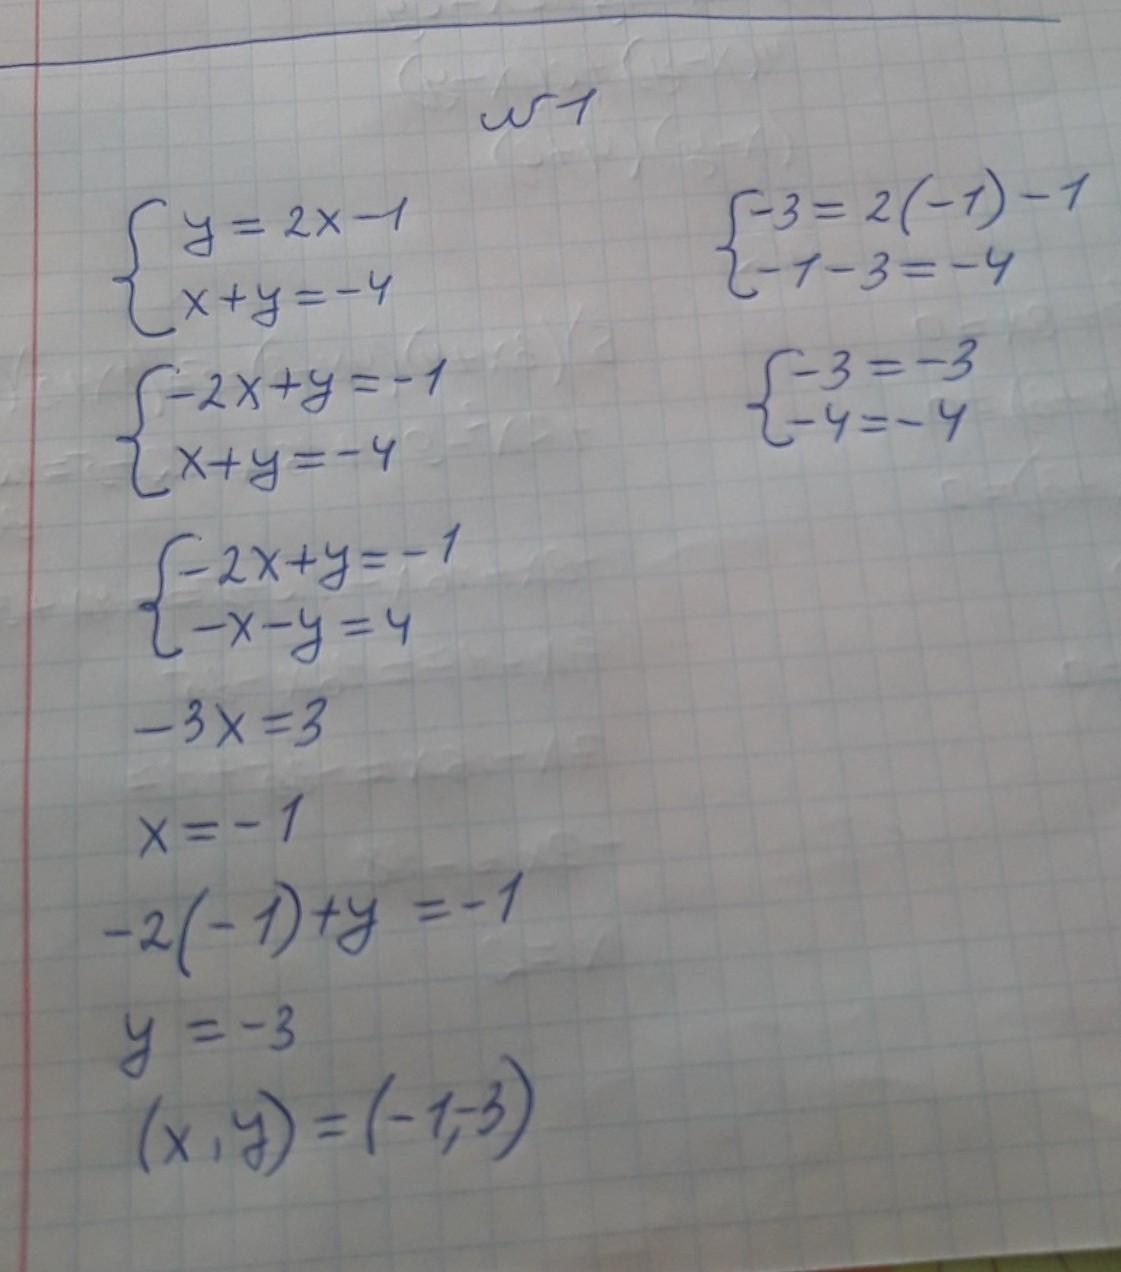 №1
y = 2x - 1
x + y = -4
-2x + y = -1
x + y = -4
-2x + y = -1
-x - y = 4
-3x = 3
x = -1
-2(-1) + y = -1
y = -3
(x, y) = (-1, -3)
-3 = 2(-1) - 1
-1 - 3 = -4
-3 = -3
-4 = -4